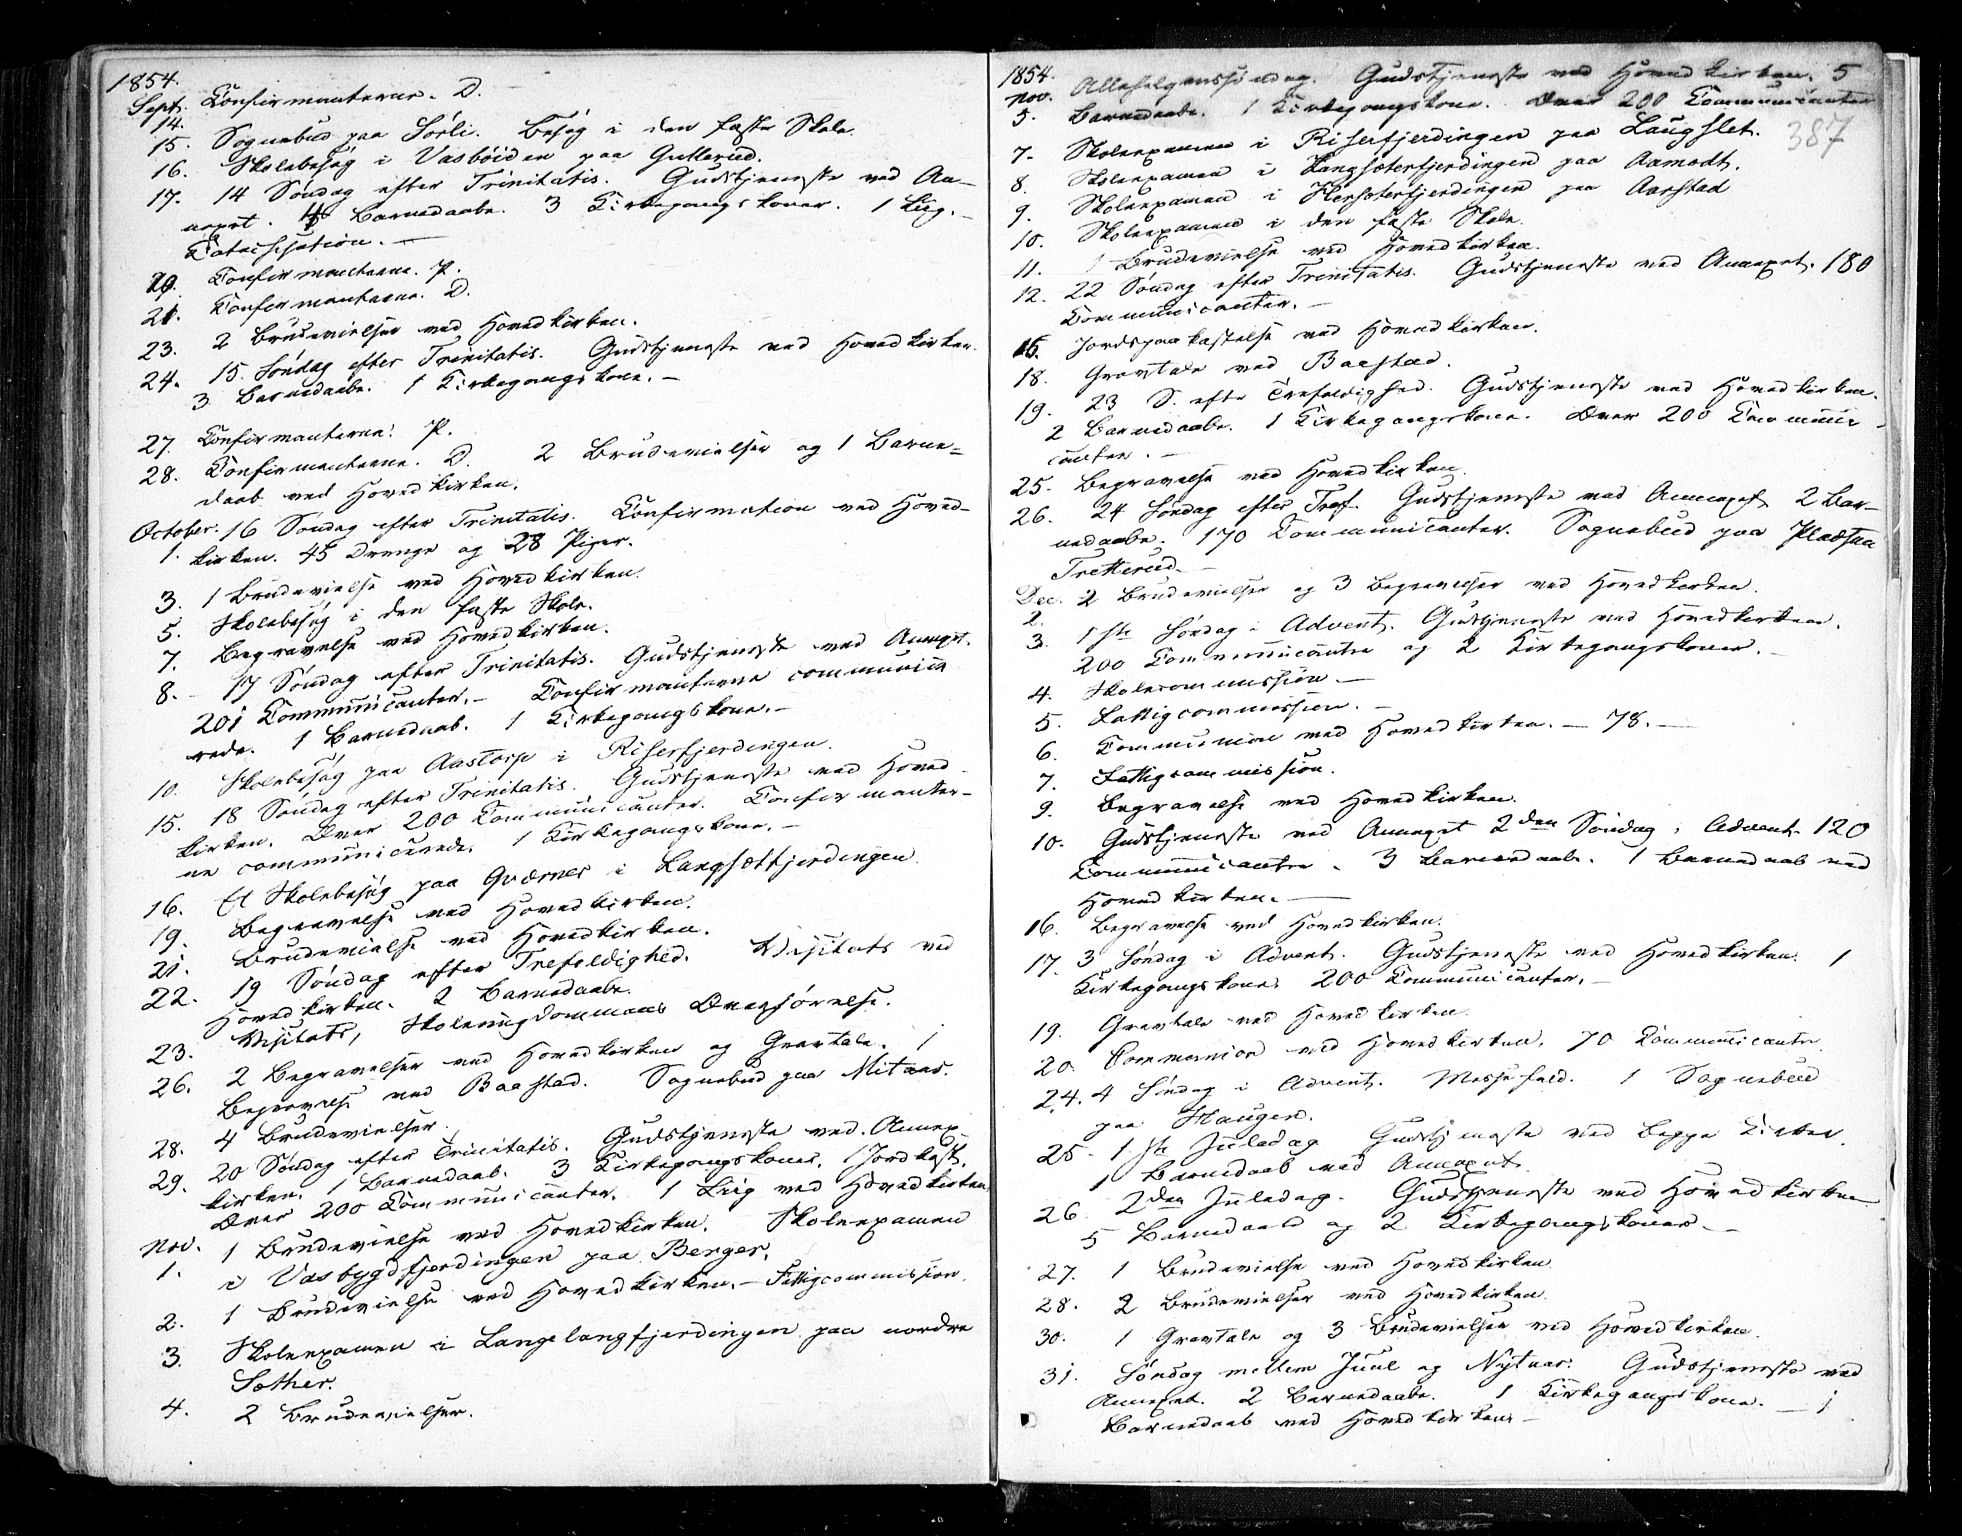 1854.
Sept. Confirmanterne. D.
14.
15. Sognebud paa Sörli. Besög i den faste Skole.
16. Skolebesög i Vasböiden paa Gullerud.
17. 14 Söndag efter Trinitatis. Gudstjeneste ved An-
nexet. 4 Barnedaabe. 3 Kirkegangskoner. 1 Liig. -
Catechisation. -
20. Confirmanterne. P.
21. Confirmanterne. D.
23. 2 Brudevielser ved Hovedkirken.
24. 15. Söndag efter Trinitatis. Gudstjeneste ved Hovedkirken.
3 Barnedaabe. 1 Kirkegangskone. -
27. Confirmanterne. P.
28. Confirmanterne. D. 2 Brudevielser og 1 Barne-
daab ved Hovedkirken.
October. 16 Söndag efter Trinitatis. Confirmation ved Hoved-
1. kirken. 45 Drenge og 28 Piger.
3. 1 Brudevielse ved Hovedkirken.
5. Skolebesög i den faste Skole.
7. Begravelse ved Hovedkirken.
8. - 17 Söndag efter Trinitatis. Gudstjeneste ved Annexet.
201 Communicanter. - Confirmanterne communice
rede. 1 Barnedaab. 1 Kirkegangskone. -
10. Skolebesög paa Aastorp i Riserfjerdingen.
15. 18 Söndag efter Trinitatis. Gudstjeneste ved Hoved-
kirken. Over 200 Communicanter. Confirmanter-
ne communicerede. 1 Kirkegangskone. -
16. Et Skolebesög paa Qværner i Langsætfjerdingen.
19. Begravelse ved Hovedkirken.
21. Brudevielse ved Hovedkirken.
22. 19 Söndag efter Trefoldighed. Visitats ved
Hovedkirken. 2 Barnedaabe.
23. Visitats, Skoleungdommens Overhörelse.
26. 2 Begravelser ved Hovedkirken og Gravtale. 1
Begravelse ved Baastad. Sognebud paa Mitaas.
28. 4 Brudevielser.
29. 20 Söndag efter Trinitatis. Gudstjeneste ved Annex-
kirken. 1 Barnedaab. 3 Kirkegangskoner. 1 Jordkast.
Over 200 Communicanter. 1 Liig ved Hovedkirken
Nov. 1 Brudevielse ved Hovedkirken. Skoleexamen
1. i Vasbygdfjerdingen paa Berger.
2. 1 Brudevielse ved Hovedkirken. - Fattigcommission.
3. Skoleexamen i Langelangfjerdingen paa nordre
Sother.
4. 2 Brudevielser.
1854. Allehelgenssöndag. Gudstjeneste ved Hovedkirken. 5
Nov.
5. Barnedaabe. 1 Kirkegangskone. Over 200 Communicanter
387
7. Skoleexamen i Riserfjerdingen paa Laugslet.
8. Skoleexamen i Langsæterfjerdingen paa Aamodt.
9. Skoleexamen i Hersæterfjerdingen paa Aarstad
10. Skoleexamen i den faste Skole.
11. 1 Brudevielse ved Hovedkirken.
12. 22 Söndag efter Trinitatis. Gudstjeneste ved Annexet. 180
Communicanter. -
15. Jordspaakastelse ved Hovedkirken.
18. Gravtale ved Baastad.
19. 23 S. efter Trefoldighed. Gudstjeneste ved Hovedkirken.
2 Barnedaabe. 1 Kirkegangskone. Over 200 Communi-
canter. -
25. Begravelse ved Hovedkirken.
26. 24 Söndag efter Tref. Gudstjeneste ved Annexet. 2 Bar-
nedaabe. 170 Communicanter. Sognebud paa Pladsen
Tretterud. -
Dec. 2 Brudevielser og 3 Begravelser ved Hovedkirken.
2.
3. 1ste Söndag i Advent. Gudstjeneste ved Hovedkirken.
200 Communicantre og 2 Kirkegangskoner. -
4. Skolecommission. -
5. Fattigcommission. -
6. Communion ved Hovedkirken. - 78. -
7. Fattigcommission.
9. Begravelse ved Hovedkirken.
10. Gudstjeneste ved Annexet 2den Söndag i Advent. 120
Communicantre. 3 Barnedaabe. 1 Barnedaab ved
Hovedkirken. -
16. Begravelse ved Hovedkirken.
17. 3 Söndag i Advent. Gudstjeneste ved Hovedkirken. 1
Kirkegangskone. 200 Communicanter. -
19. Gravtale ved Hovedkirken.
20. Communion ved Hovedkirken. 70 Communicantre
24. 4 Söndag i Advent. Messefald. 1 Sognebud
paa Haugen.
25. 1ste Juledag Gudstjeneste ved begge Kirker.
1 Barnedaab ved Annexet.
26. 2den Juledag. Gudstjeneste ved Hovedkirken
5 Barnedaabe og 2 Kirkegangskoner. -
27. 1 Brudevielse ved Hovedkirken.
28. 2 Brudevielser ved Hovedkirken.
30. 1 Gravtale og 3 Brudevielser ved Hovedkirken.
31. Söndag mellem Juul og Nytaar. Gudstjeneste ved
Annexet. 2 Barnedaabe. 1 Kirkegangskone. - 1
Barnedaab ved Hovedkirken -